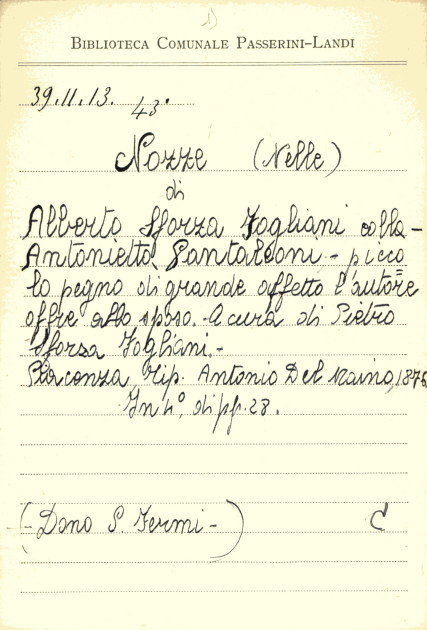 1)
BIBLIOTECA COMUNALE PASSERINI-LANDI
39.II.13. 43.
Nozze (Nelle)
di
Alberto Sforza Fogliani colla-
Antonietta Pantaleoni - picco
lo pegno di grande affetto l'autore
offre allo sposo. - A cura di Pietro
Sforza Fogliani. -
Piacenza, Tip. Antonio Del Maino, 1876
In 4°, di pp. 28.
(- Dono S. Fermi -)
C